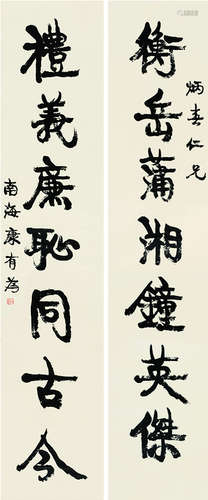 衡岳蒲湘鐘英傑
炳春仁兄
禮義廉恥同古今
南海康有為